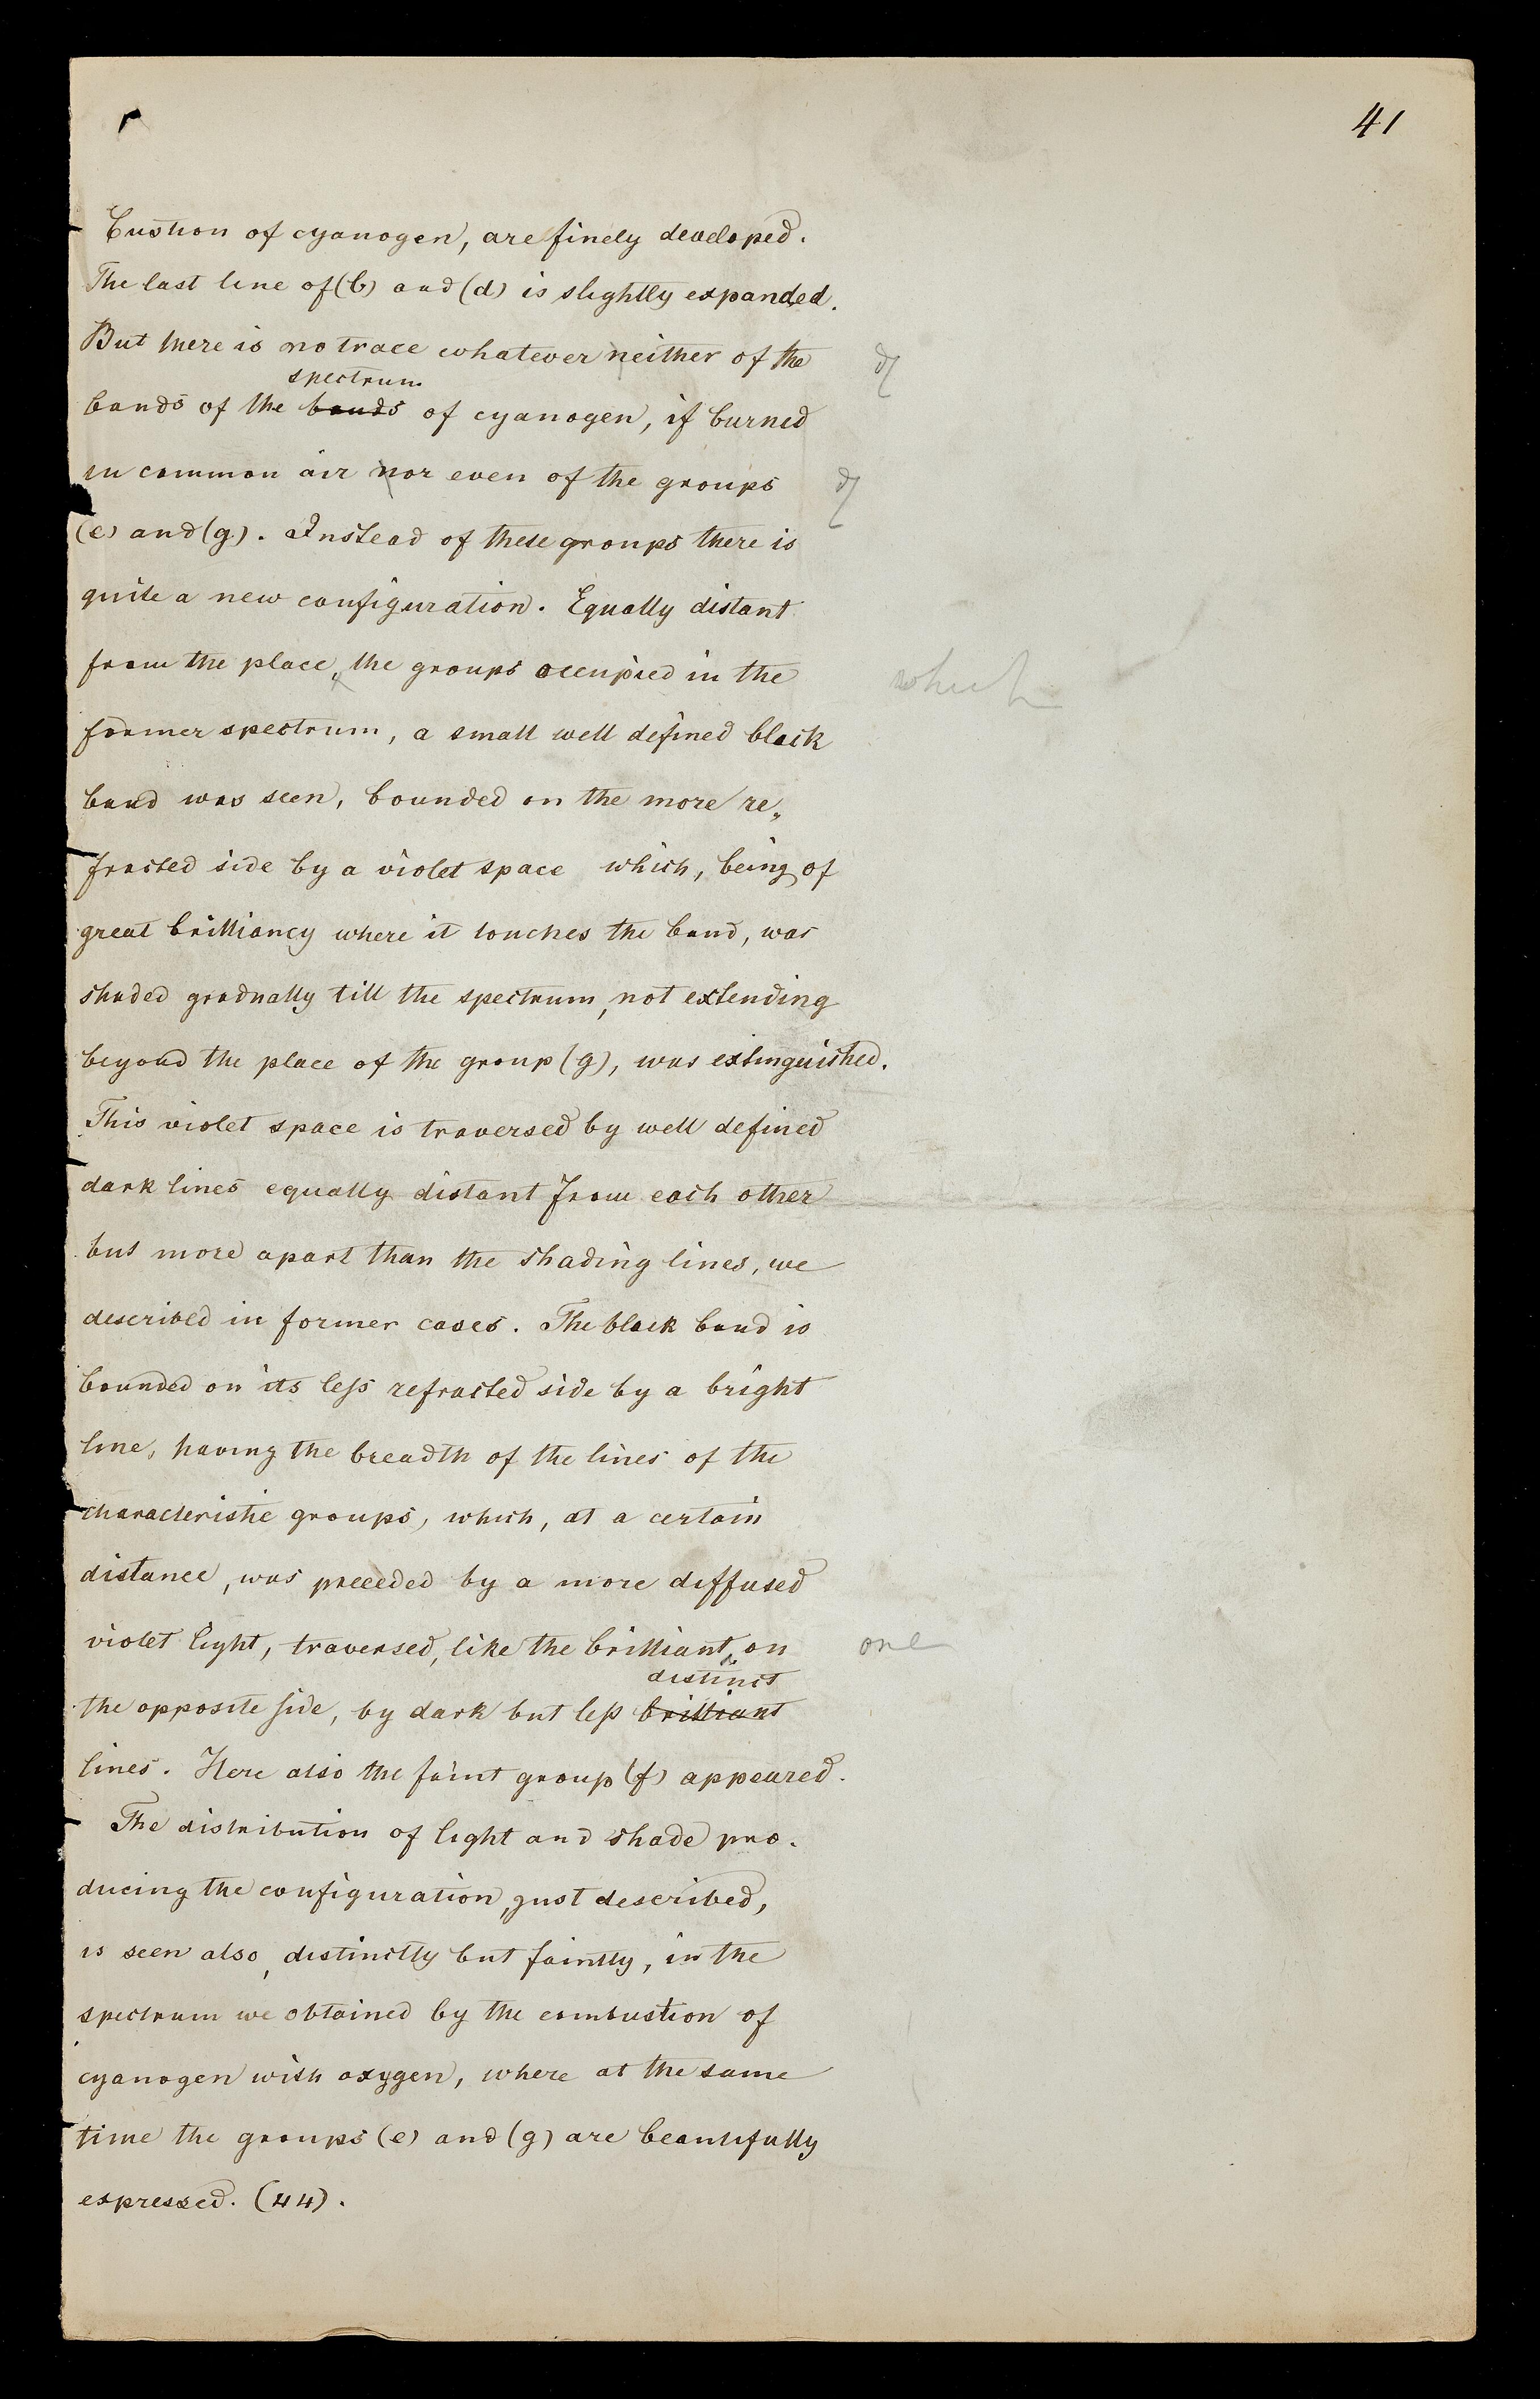 41
bustion of cyanogen, are finely developed.
The last line of (b) and (d) is slightly expanded.
But there is no trace whatever neither of the
spectrum
bands of the bands of cyanogen, if burned
in common air nor even of the groups
(e) and (g). Instead of these groups there is
quite a new configuration. Equally distant
from the place, the groups occupied in the
which
former spectrum, a small well defined black
band was seen, bounded on the more re„
fracted side by a violet space which, being of
great brilliancy where it touches the band, was
shaded gradually till the spectrum, not extending
beyond the place of the group (g), was extinguished.
This violet space is traversed by well defined
dark lines equally distant from each other
but more apart than the shading lines, we
described in former cases. The black band is
bounded on its less refracted side by a bright
line, having the breadth of the lines of the
characteristic groups, which, at a certain
distance, was preceded by a more diffused
violet light, traversed, like the brilliant, on
one
distinct
the opposite side, by dark but less brilliant
lines. Here also the faint group (f) appeared.
The distribution of light and shade pro.
ducing the configuration, just described,
is seen also, distinctly but faintly, in the
spectrum we obtained by the combustion of
cyanogen with oxygen, where at the same
time the groups (e) and (g) are beautifully
expressed. (44).